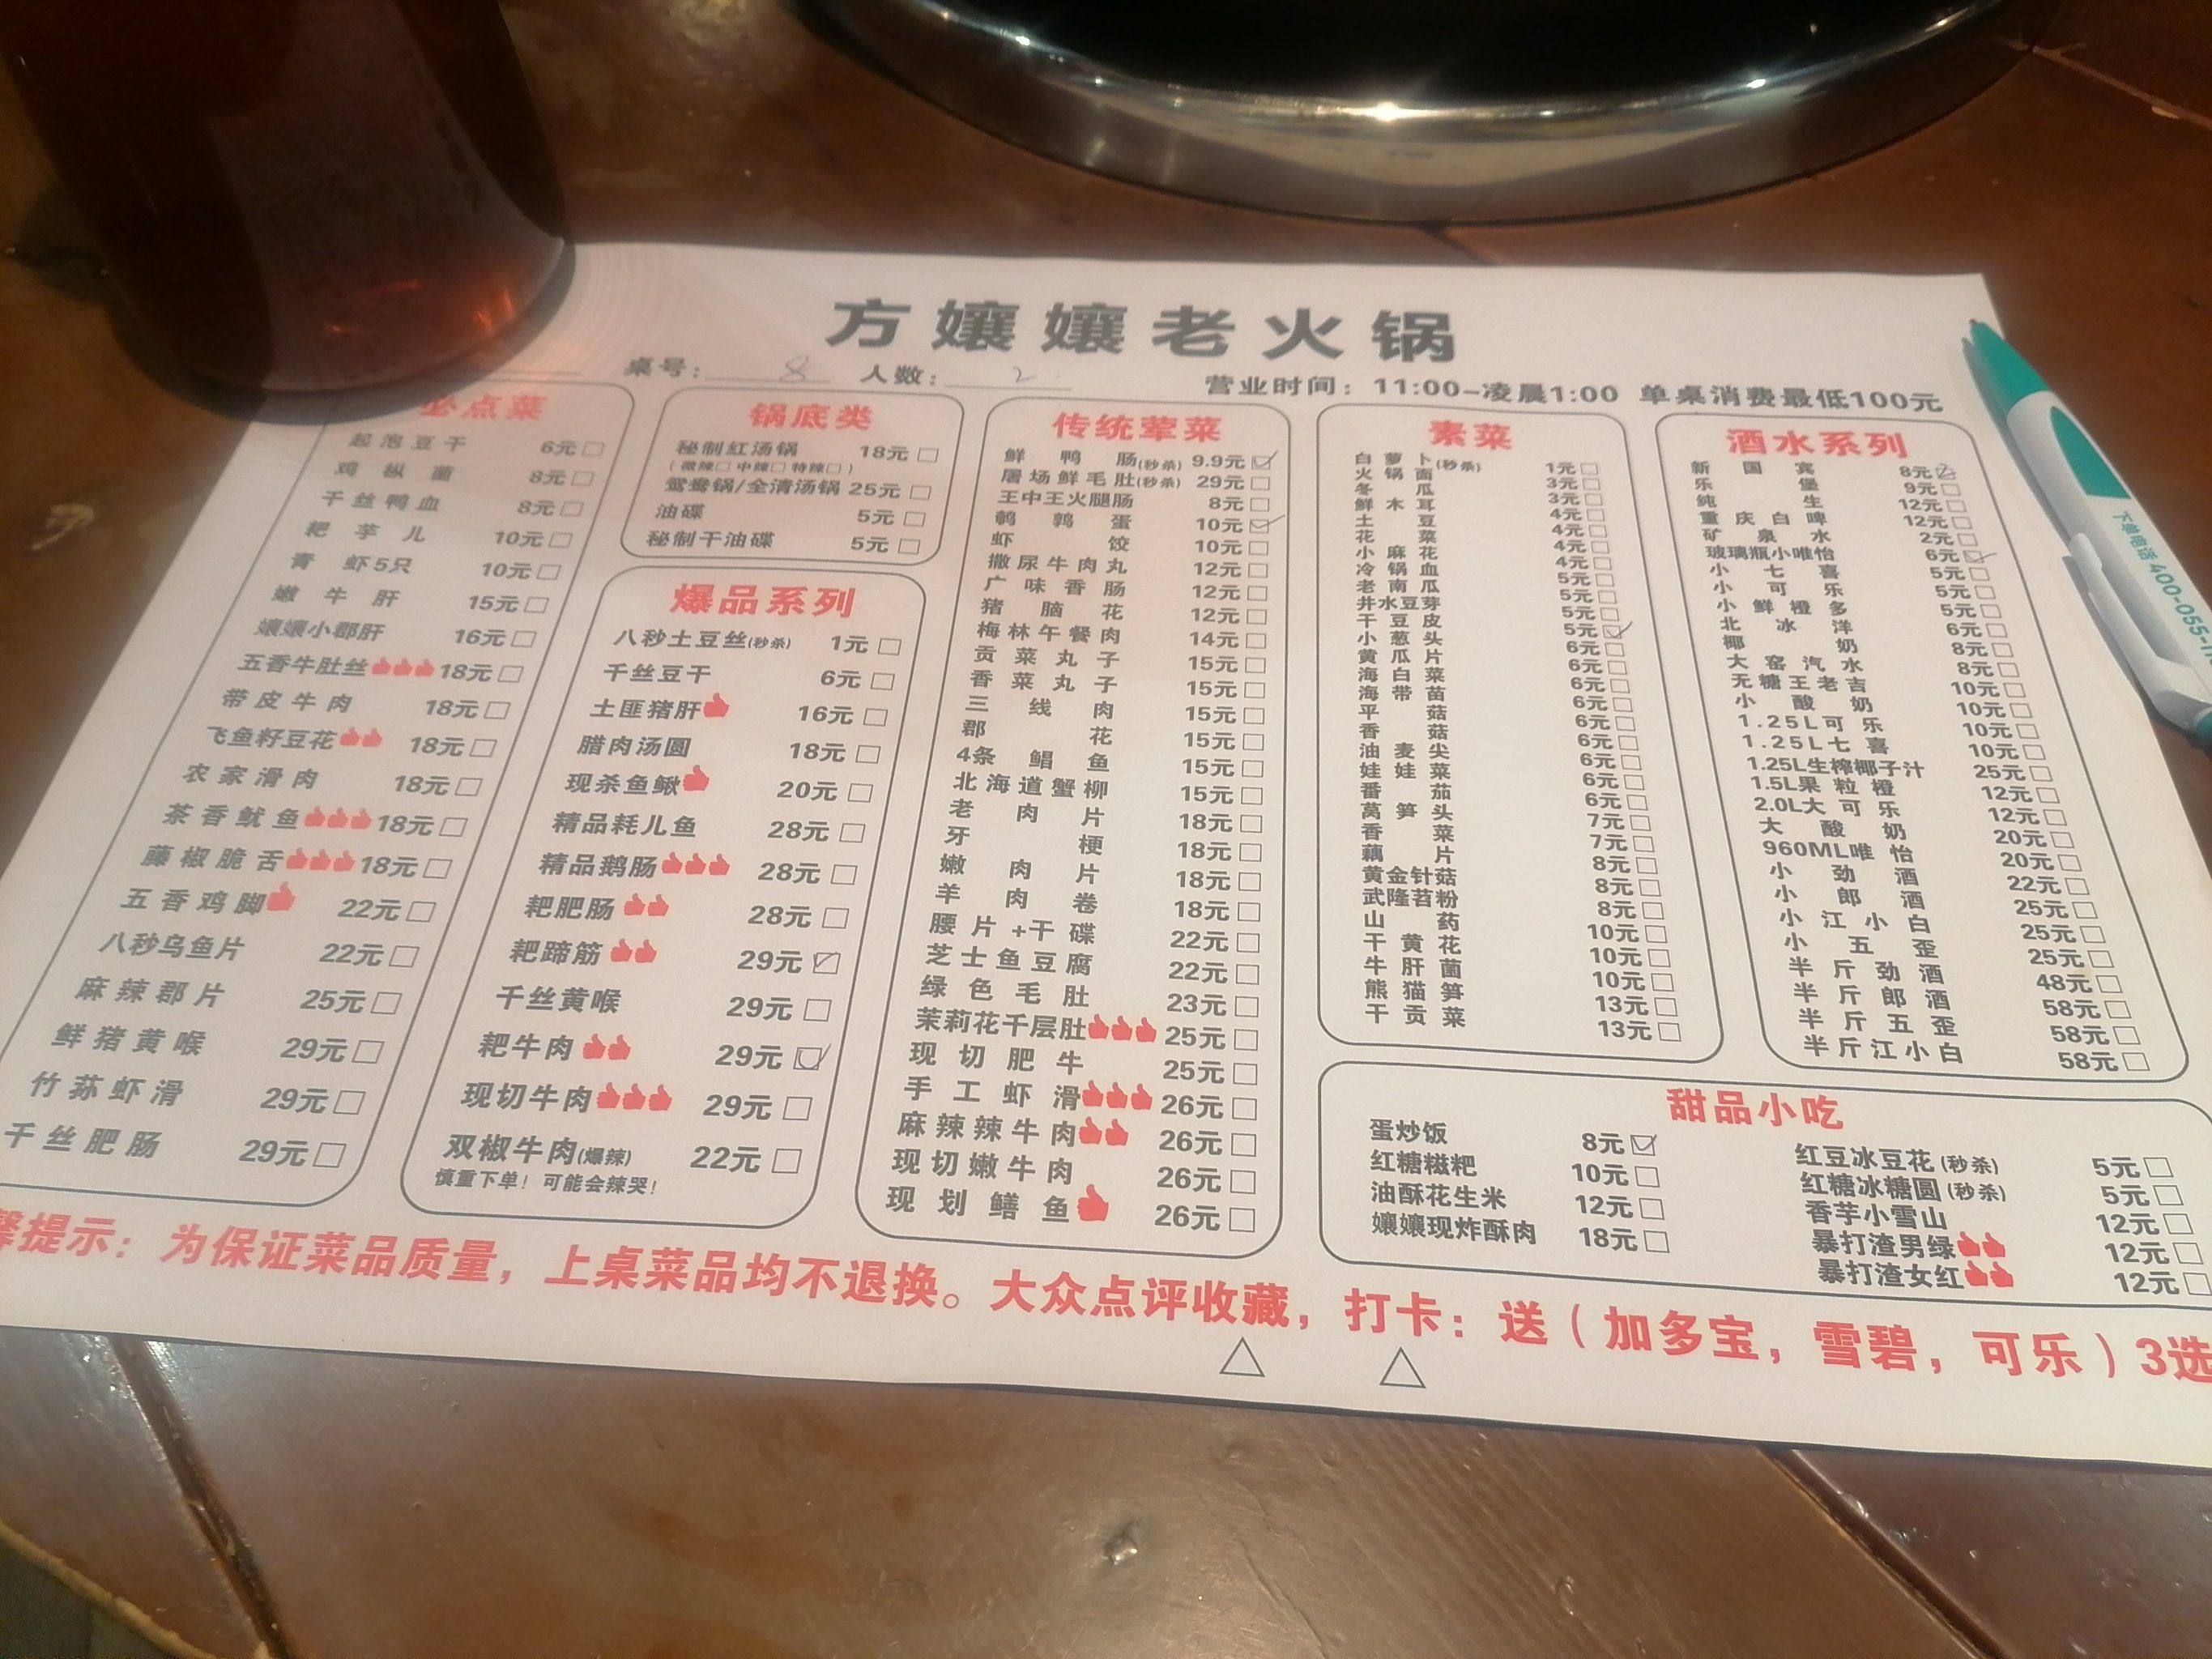 方孃孃老火锅
桌号：8 人数：2 营业时间：11:00-凌晨1:00 单桌消费最低100元
必点菜
起泡豆干 6元
鸡枞菌 8元
千丝鸭血 8元
耙芋儿 10元
青虾5只 10元
嫩牛肝 15元
孃孃小郡肝 16元
五香牛肚丝 18元
带皮牛肉 18元
飞鱼籽豆花 18元
农家滑肉 18元
茶香鱿鱼 18元
藤椒脆舌 18元
五香鸡脚 22元
八秒乌鱼片 22元
麻辣郡片 25元
鲜猪黄喉 29元
竹荪虾滑 29元
千丝肥肠 29元
锅底类
秘制红汤锅 18元
（微辣□ 中辣□ 特辣□）
鸳鸯锅/全清汤锅 25元
油碟 5元
秘制干油碟 5元
爆品系列
八秒土豆丝(秒杀) 1元
千丝豆干 6元
土匪猪肝 16元
腊肉汤圆 18元
现杀鱼鳅 20元
精品耗儿鱼 28元
精品鹅肠 28元
耙肥肠 28元
耙蹄筋 29元
千丝黄喉 29元
耙牛肉 29元
现切牛肉 29元
双椒牛肉(爆辣) 22元
慎重下单！可能会辣哭！
传统荤菜
鲜鸭肠(秒杀) 9.9元
屠场鲜毛肚(秒杀) 29元
王中王火腿肠 8元
鹌鹑蛋 10元
虾饺 10元
撒尿牛肉丸 12元
广味香肠 12元
猪脑花 12元
梅林午餐肉 14元
贡菜丸子 15元
香菜丸子 15元
三线肉 15元
郡花 15元
4条鲳鱼 15元
北海道蟹柳 15元
老肉片 18元
牙梗 18元
嫩肉片 18元
羊肉卷 18元
腰片+干碟 22元
芝士鱼豆腐 22元
绿色毛肚 23元
茉莉花千层肚 25元
现切肥牛 25元
手工虾滑 26元
麻辣辣牛肉 26元
现切嫩牛肉 26元
现划鳝鱼 26元
素菜
白萝卜(秒杀) 1元
火锅面 3元
冬瓜 3元
鲜木耳 4元
土豆 4元
花菜 4元
小麻花 4元
冷锅血 5元
老南瓜 5元
井水豆芽 5元
干豆皮 5元
小葱头 6元
黄瓜片 6元
海白菜 6元
海带苗 6元
平菇 6元
香菇 6元
油麦尖 6元
娃娃菜 6元
番茄 6元
莴笋头 7元
香菜 7元
藕片 8元
黄金针菇 8元
武隆苕粉 8元
山药 10元
干黄花 10元
牛肝菌 10元
熊猫笋 13元
干贡菜 13元
酒水系列
新国宾 8元
乐堡 9元
纯生 12元
重庆白啤 12元
矿泉水 2元
玻璃瓶小唯怡 6元
小七喜 5元
小可乐 5元
小鲜橙多 5元
北冰洋 6元
椰奶 8元
大窑汽水 8元
无糖王老吉 10元
小酸奶 10元
1.25L可乐 10元
1.25L七喜 10元
1.25L生榨椰子汁 25元
1.5L果粒橙 12元
2.0L大可乐 12元
大酸奶 20元
960ML唯怡 20元
小劲酒 22元
小郎酒 25元
小江小白 25元
小五歪 25元
半斤劲酒 48元
半斤郎酒 58元
半斤五歪 58元
半斤江小白 58元
甜品小吃
蛋炒饭 8元
红糖糍粑 10元
油酥花生米 12元
孃孃现炸酥肉 18元
红豆冰豆花(秒杀) 5元
红糖冰糖圆(秒杀) 5元
香芋小雪山 12元
暴打渣男绿 12元
暴打渣女红 12元
馨提示：为保证菜品质量，上桌菜品均不退换。大众点评收藏，打卡：送（加多宝，雪碧，可乐）3选
下单电话400-055-1